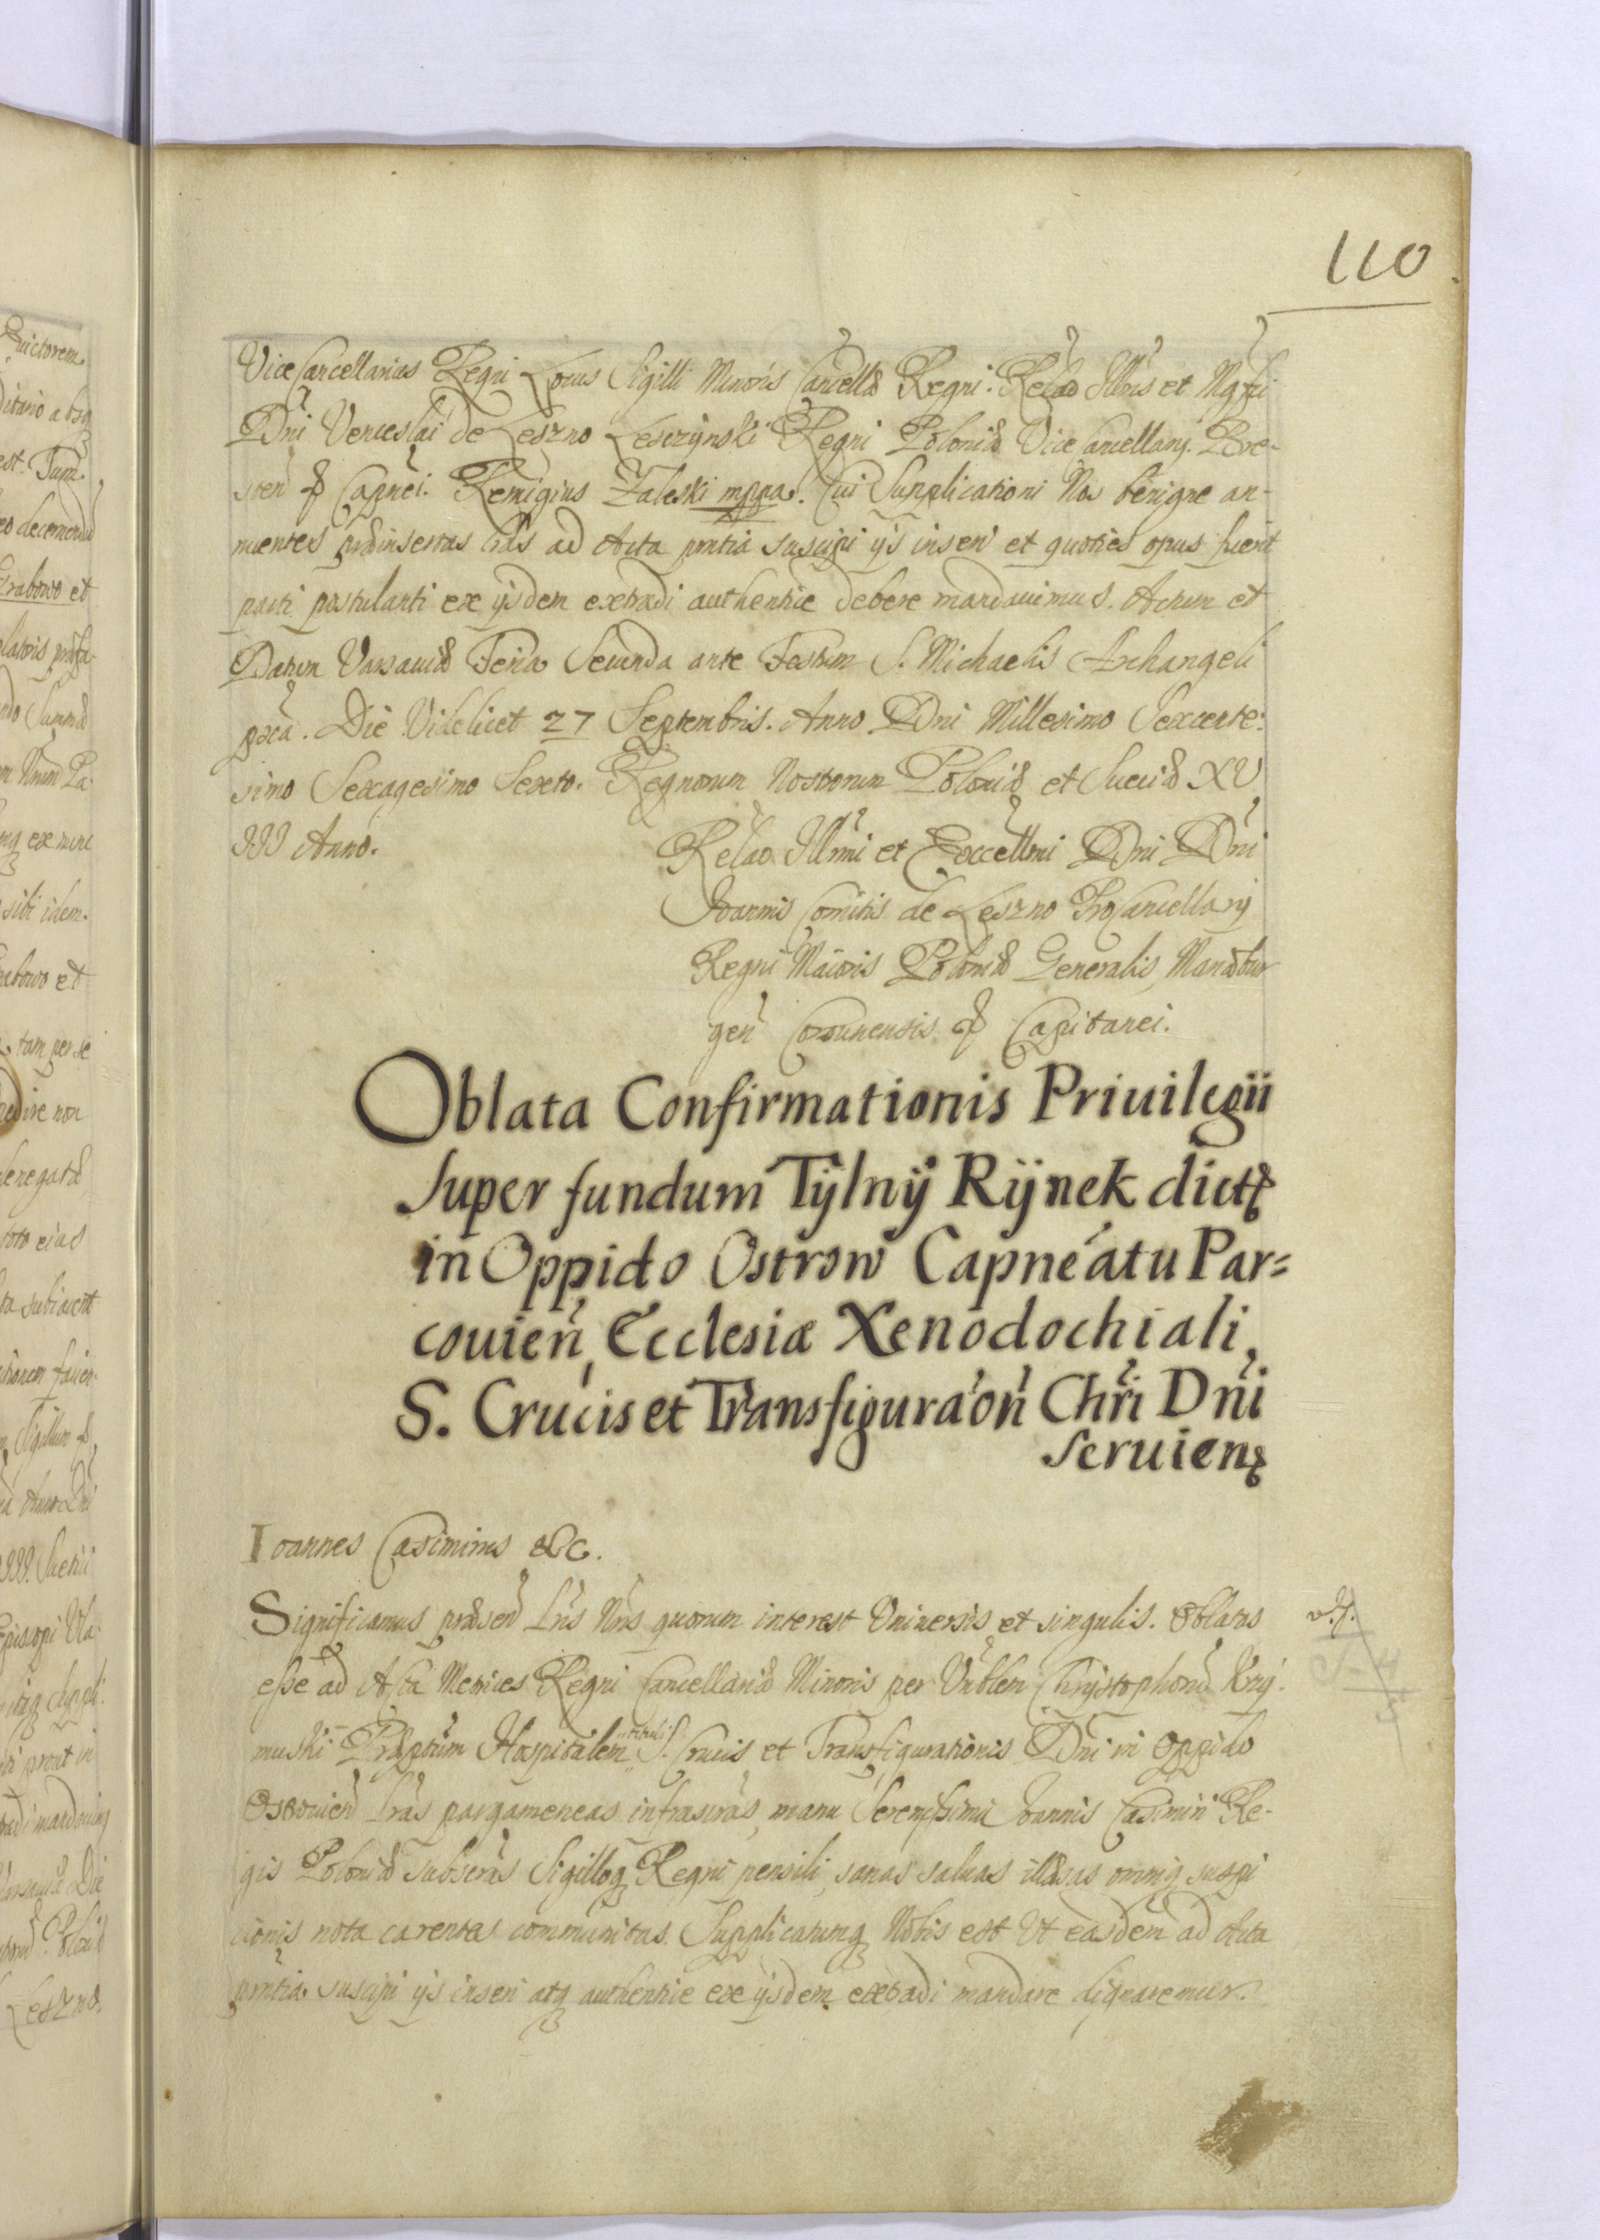 110
ViceCancellarius Regni Locus Sigilli Minoris Cancellæ Regni. Relao Illris et Mgfci
Dni Venceslai de Leszno Lesczÿnski Regni Poloniæ ViceCancellarij. Bre-
scen & Capnei. Remigius Zaleski mppa. Cui Supplicationi Nos benigne an-
nuentes præinsertas Lras ad Acta pntia suscipi ijs inseri et quoties opus fuerit
parti postulanti ex ijsdem extradi authentice debere mandauimus. Actum et
Datum Varsauiæ Feria Secunda ante Festum S. Michaelis Archangeli
pxa. Die Videlicet 27 Septembris. Anno Dni Millesimo Sexcente:
simo Sexagesimo Sexto. Regnorum Nostrorum Poloniæ et Sueciæ XV
III Anno.
Relao Illmi et Excellmi Dni Dni
Joannis Comitis de Leszno ProCancellarij
Regni Maioris Poloniæ Generalis, Mariæbur
gen Corsunensis & Capitanei.
Oblata Confirmationis Priuilegii
super fundum Tÿlnÿ Rÿnek dict
in Oppido Ostrow Capneatu Par=
couien, Ecclesiæ Xenodochiali,
S. Crucis et Transfiguraon Chri Dni
seruien
Ioannes Casimirus &c.
Significamus præsen Lris Nris quorum interest Vniuersis et singulis. Oblatas
esse ad Acta Metrices Regni Cancellariæ Minoris per Vrblem Chrÿstophorũ Krzÿ-
muski Præptum Hospitalem tituli S. Crucis et Transfigurationis Dni in Oppido
Ostrouien Lras pargameneas infrascras, manu Serenissimi Ioannis Casimiri Re-
gis Poloniæ subscras Sigilloq Regni pensili, sanas saluas illæsas omniq suspi
cionis nota carentes communitas. Supplicatumq Nobis est Vt easdem ad Acta
pntia suscipi ijs inseri atq authentice ex ijsdem extradi mandare dignaremur.